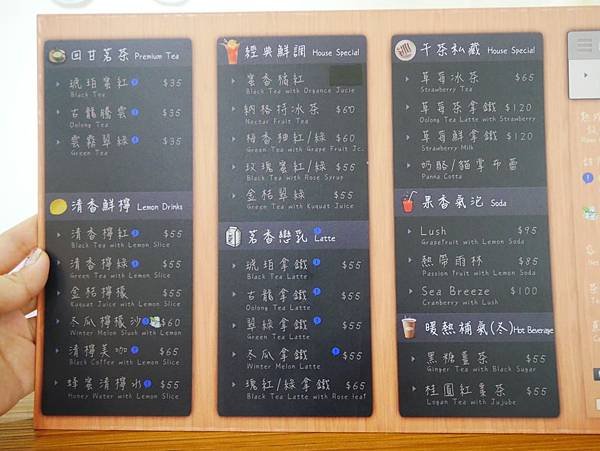 回甘茗茶 Premium Tea
琥珀蜜紅 $35
Black Tea
古龍騰雲 $35
Oolong Tea
雲霧翠綠 $35
Green Tea
清香鮮檸 Lemon Drinks
清香檸紅 $55
Black Tea with Lemon Slice
清香檸綠 $55
Green Tea with Lemon Slice
金桔檸檬 $55
Kuquat Juice with Lemon Slice
冬瓜檸檬沙 $60
Winter Melon Slush with Lemon
清檸美咖 $65
Black Coffee with Lemon Slice
蜂蜜清檸水 $55
Honey Water with Lemon Slice
經典鮮調 House Special
蜜香橘紅
Black Tea with Organce Jucie
納格特冰茶 $60
Nectar Fruit Tea
梅香柚紅/綠 $60
Green Tea with Grape Fruit Jc.
玫瑰蜜紅/綠 $55
Black Tea with Rose Syrup
金桔翠綠 $55
Green Tea with Kuquat Juice
茗香戀乳 Latte
琥珀拿鐵 $55
Black Tea Latte
古龍拿鐵 $55
Oolong Tea Latte
翠綠拿鐵 $55
Green Tea Latte
冬瓜拿鐵 $55
Winter Melon Latte
瑰紅/綠拿鐵 $65
Black Tea Latte with Rose Leaf
干茶私藏 House Special
草莓冰茶 $65
Strawberry Tea
草莓茶拿鐵 $120
Oolong Tea Latte with Strawberry
草莓鮮拿鐵 $120
Strawberry Milk
奶酪/貓掌布蕾
Panna Cotta
果香氣泡 Soda
Lush $95
Grapefruit with Lemon Soda
熱帶雨林 $85
Passion fruit with Lemon Soda
Sea Breeze $100
Cranberry with Lush
暖熱補氣(冬) Hot Beverage
黑糖薑茶 $55
Ginger Tea with Black Sugar
桂圓紅棗茶 $55
Logan Tea with Jujube